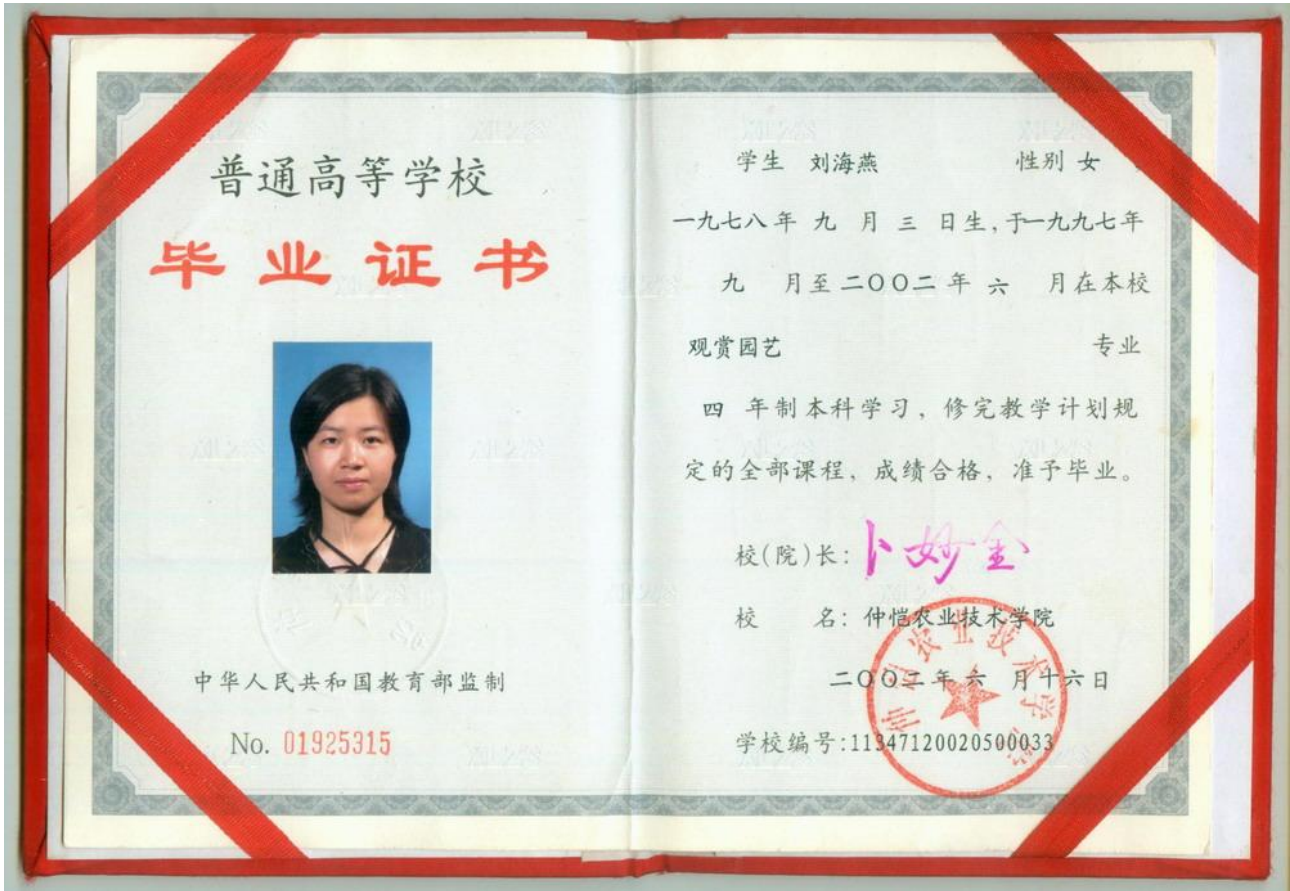 普通高等学校
毕业证书
中华人民共和国教育部监制
No. 01925315
学生 刘海燕 性别 女
一九七八年 九 月 三 日生,于一九九七年
九 月至二〇〇二年 六 月在本校
观赏园艺 专业
四 年制本科学习，修完教学计划规
定的全部课程，成绩合格，准予毕业。
校(院)长: 卜妙金
校 名: 仲恺农业技术学院
二〇〇二年 六 月十六日
学校编号:11347120020500033
仲恺农业技术学院